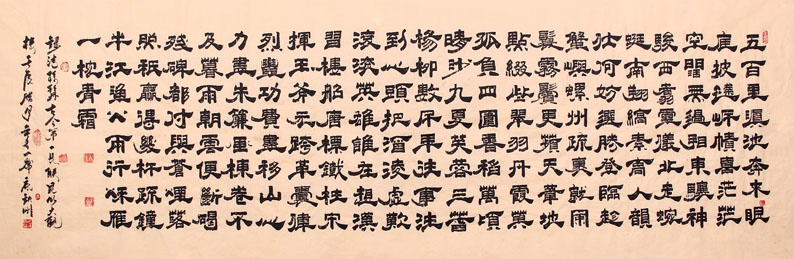 五百里滇池奔來眼
底披襟岸幘喜茫茫
空闊無邊看東驤神
駿西翥靈儀北走蜿
蜒南翔縞素高人韻
仕何妨選勝登臨趁
蟹嶼螺州梳裹就風
鬟霧鬢更蘋天葦地
點綴些翠羽丹霞莫
孤負四圍香稻萬頃
晴沙九夏芙蓉三春
楊柳數千年往事注
到心頭把酒凌虛歎
滾滾英雄誰在想漢
習樓船唐標鐵柱宋
揮玉斧元跨革囊偉
烈豐功費盡移山心
力盡朱簾畫棟卷不
及暮雨朝雲便斷碣
殘碑都付與蒼煙落
照祇贏得幾杵疏鐘
半江漁火兩行秋雁
一枕青霜